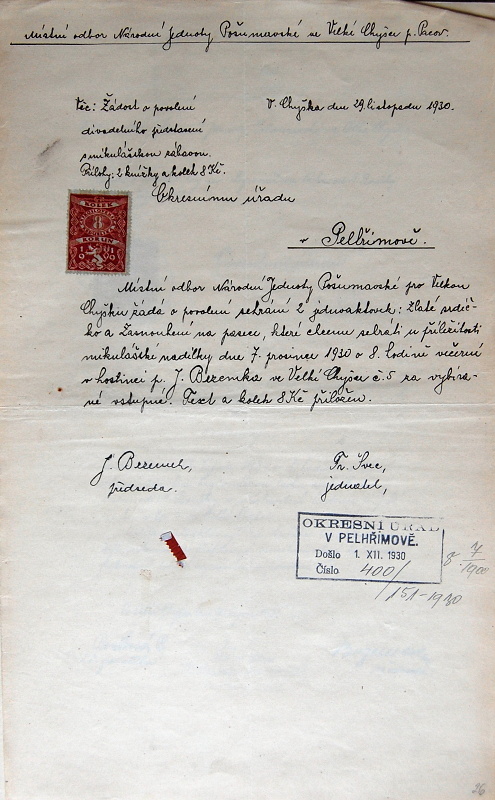 Místní odbor Národní Jednoty Pošumavské ve Velké Chyšce p. Pacov.
Věc: Žádost o povolení
divadelního představení
s mikulášskou zábavou.
Přílohy: 2 knížky a kolek 8 Kč.
V. Chyška dne 29. listopadu 1930.
Okresnímu úřadu
v Pelhřimově.
KOLEK
8
KORUN
Místní odbor Národní Jednoty Pošumavské pro Velkou
Chyšku žádá o povolení sehrání 2 jednoaktovek: Zlaté srdéč-
ko a Zasnoubení na pasece, které chceme sehráti u příležitosti
mikulášské nadílky dne 7. prosince 1930 o 8. hodině večerní
v hostinci p. J. Bezemka ve Velké Chyšce č. 5 za vybíra-
né vstupné. Text a kolek 8 Kč přiložen.
J. Bezemek,
předseda.
Fr. Švec,
jednatel,
OKRESNÍ ÚŘAD
V PELHŘIMOVĚ.
Došlo 1. XII. 1930
Číslo 400/
/151-1930
26